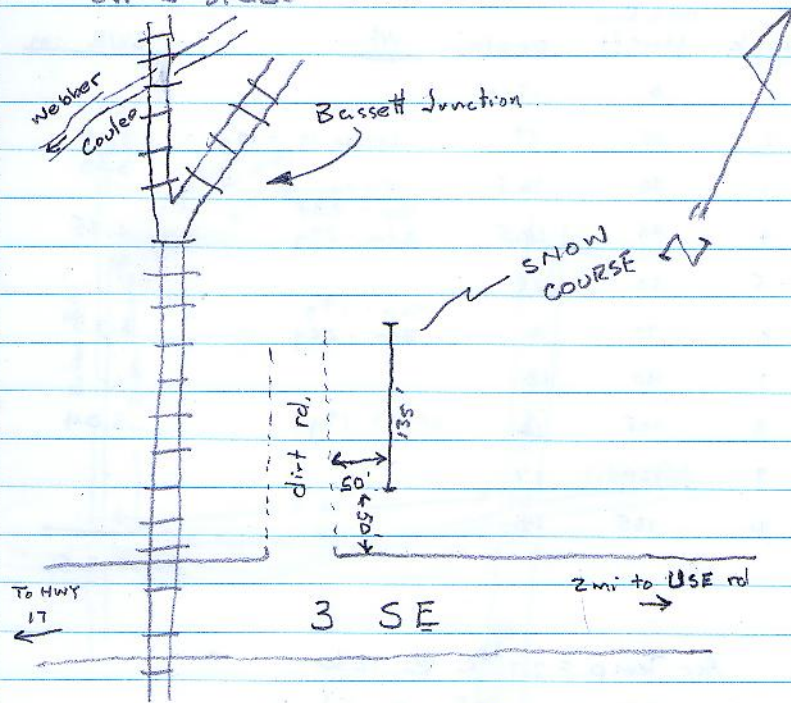 Webber
Coulee
Bassett Junction
N
SNOW
COURSE
dirt rd.
135'
50'
50'
To HWY
17
3 SE
2 mi to USE rd